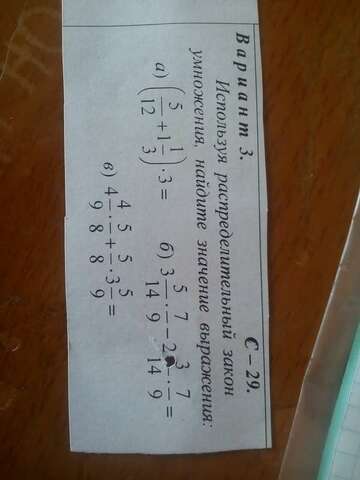 Вариант 3. С – 29.
Используя распределительный закон
умножения, найдите значение выражения:
а) (5/12 + 1 1/3) · 3 = б) 3 5/14 · 7/9 – 2 3/14 · 7/9 =
в) 4 4/9 · 5/8 + 5/8 · 3 5/9 =